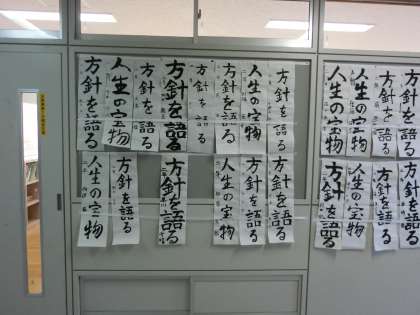 方針を語る
人生の宝物
方針を語る
方針を語る
方針を語る
方針を語る
人生の宝物
方針を語る
人生の宝物
方針を語る
方針を語る
人生の宝物
方針を語る
方針を語る
人生の宝物
人生の宝物
方針を語る
方針を語る
方針を語る
人生の宝物
方針を語る
方針を語る